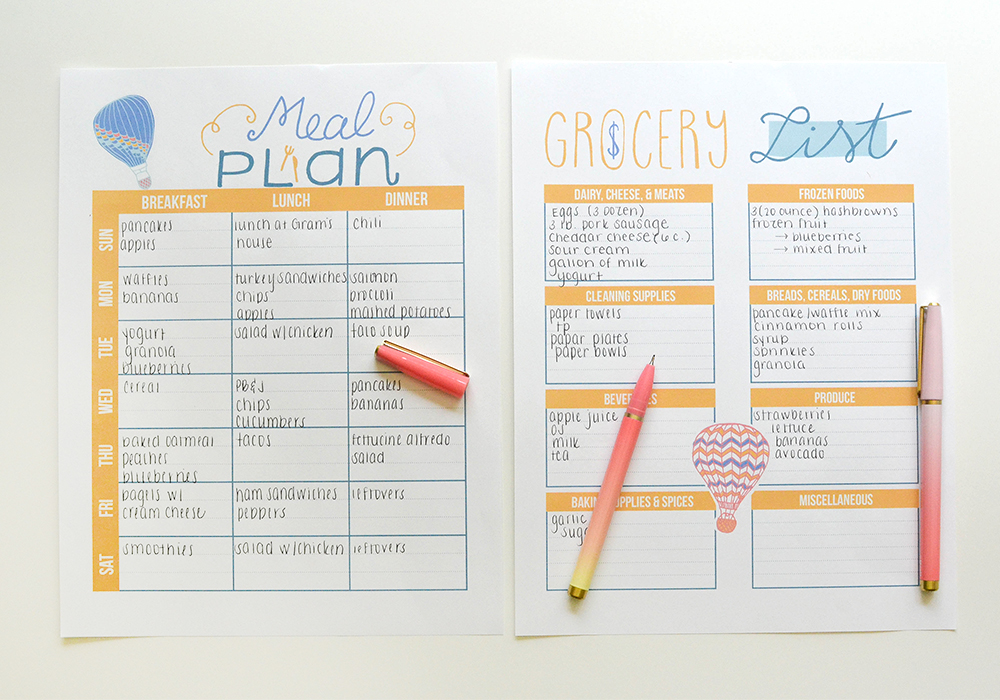 Meal
PLan
BREAKFAST LUNCH DINNER
SUN
pancakes
apples
lunch at Gram's
house
chili
MON
waffles
bananas
turkey sandwiches
chips
apples
salmon
brocloli
mashed potatoes
TUE
yogurt
granola
blueberries
salad w/chicken
taco soup
WED
cereal
PB&J
chips
cucumbers
pancakes
bananas
THU
baked oatmeal
peaches
blueberries
tacos
fettucine alfredo
salad
FRI
bagels w/
cream cheese
ham sandwiches
peppers
leftovers
SAT
smoothies
salad w/chicken
leftovers
GR$CERY List
DAIRY, CHEESE, & MEATS
Eggs (3 DOZEN)
3 lb. pork sausage
cheddar cheese (6 c.)
sour cream
gallon of milk
yogurt
FROZEN FOODS
3(20 ounce) hashbrowns
frozen fruit
→ blueberries
→ mixed fruit
CLEANING SUPPLIES
paper towels
tp
papar plates
paper bowls
BREADS, CEREALS, DRY FOODS
pancake/waffle mix
cinnamon rolls
syrup
sprinkles
granola
BEVE
apple juice
OJ
milk
tea
PRODUCE
strawberries
lettuce
bananas
avocado
BAKING SUPPLIES & SPICES
garlic
suga
MISCELLANEOUS